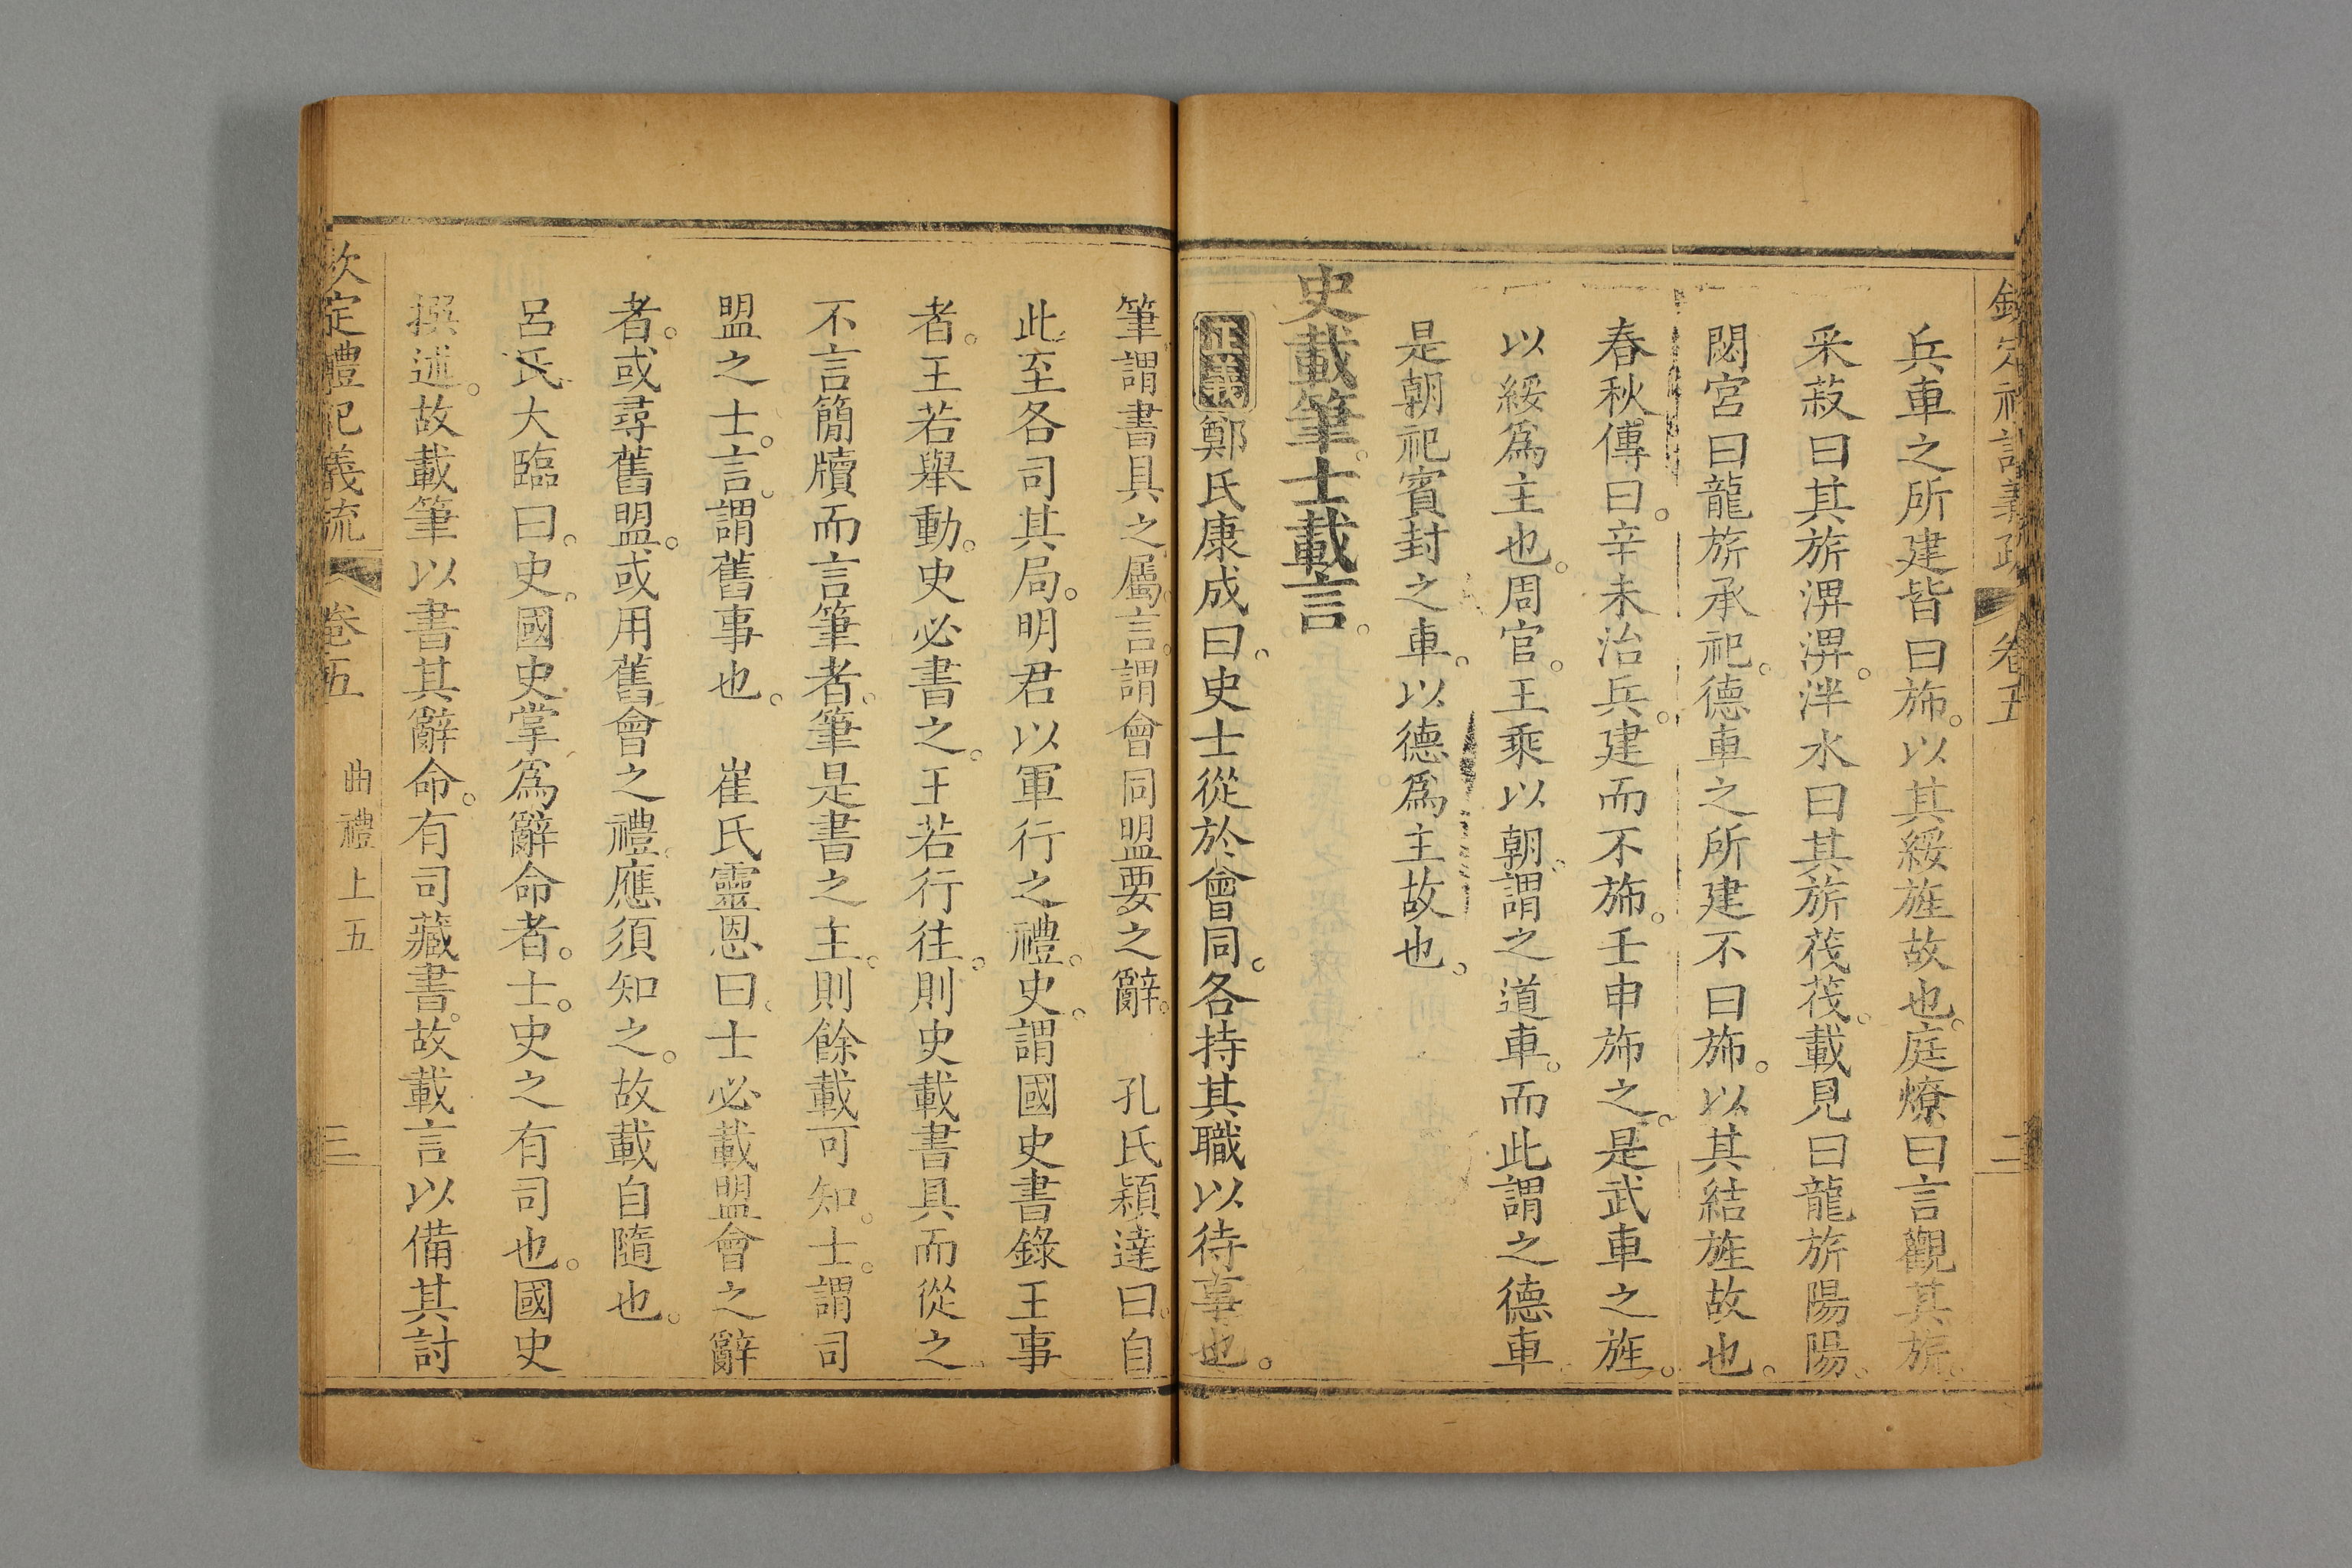 欽定禮記義疏 卷五 二
兵車之所建皆曰斾。以其綏旌故也。庭燎曰言觀其旂。
采菽曰其旂淠淠。泮水曰其旂茷茷。載見曰龍旂陽陽。
閟宮曰龍旂承祀。德車之所建不曰斾。以其結旌故也。
春秋傳曰。辛未治兵。建而不斾。壬申斾之。是武車之旌。
以綏爲主也。周官。王乘以朝。謂之道車。而此謂之德車
是朝祀賓封之車。以德爲主故也。
史載筆。士載言。
正義鄭氏康成曰。史士從於會同。各持其職以待事也。
筆。謂書具之屬。言。謂會同盟要之辭。 孔氏穎達曰。自
此至各司其局。明君以軍行之禮。史。謂國史書錄王事
者。王若舉動。史必書之。王若行往。則史載書具而從之。
不言簡牘而言筆者。筆是書之主。則餘載可知。士。謂司
盟之士。言。謂舊事也。 崔氏靈恩曰。士必載盟會之辭
者。或尋舊盟。或用舊會之禮。應須知之。故載自隨也。
呂氏大臨曰。史。國史掌爲辭命者。士。史之有司也。國史
撰述。故載筆以書其辭命。有司藏書。故載言以備其討
欽定禮記義疏 卷五 曲禮上五 三